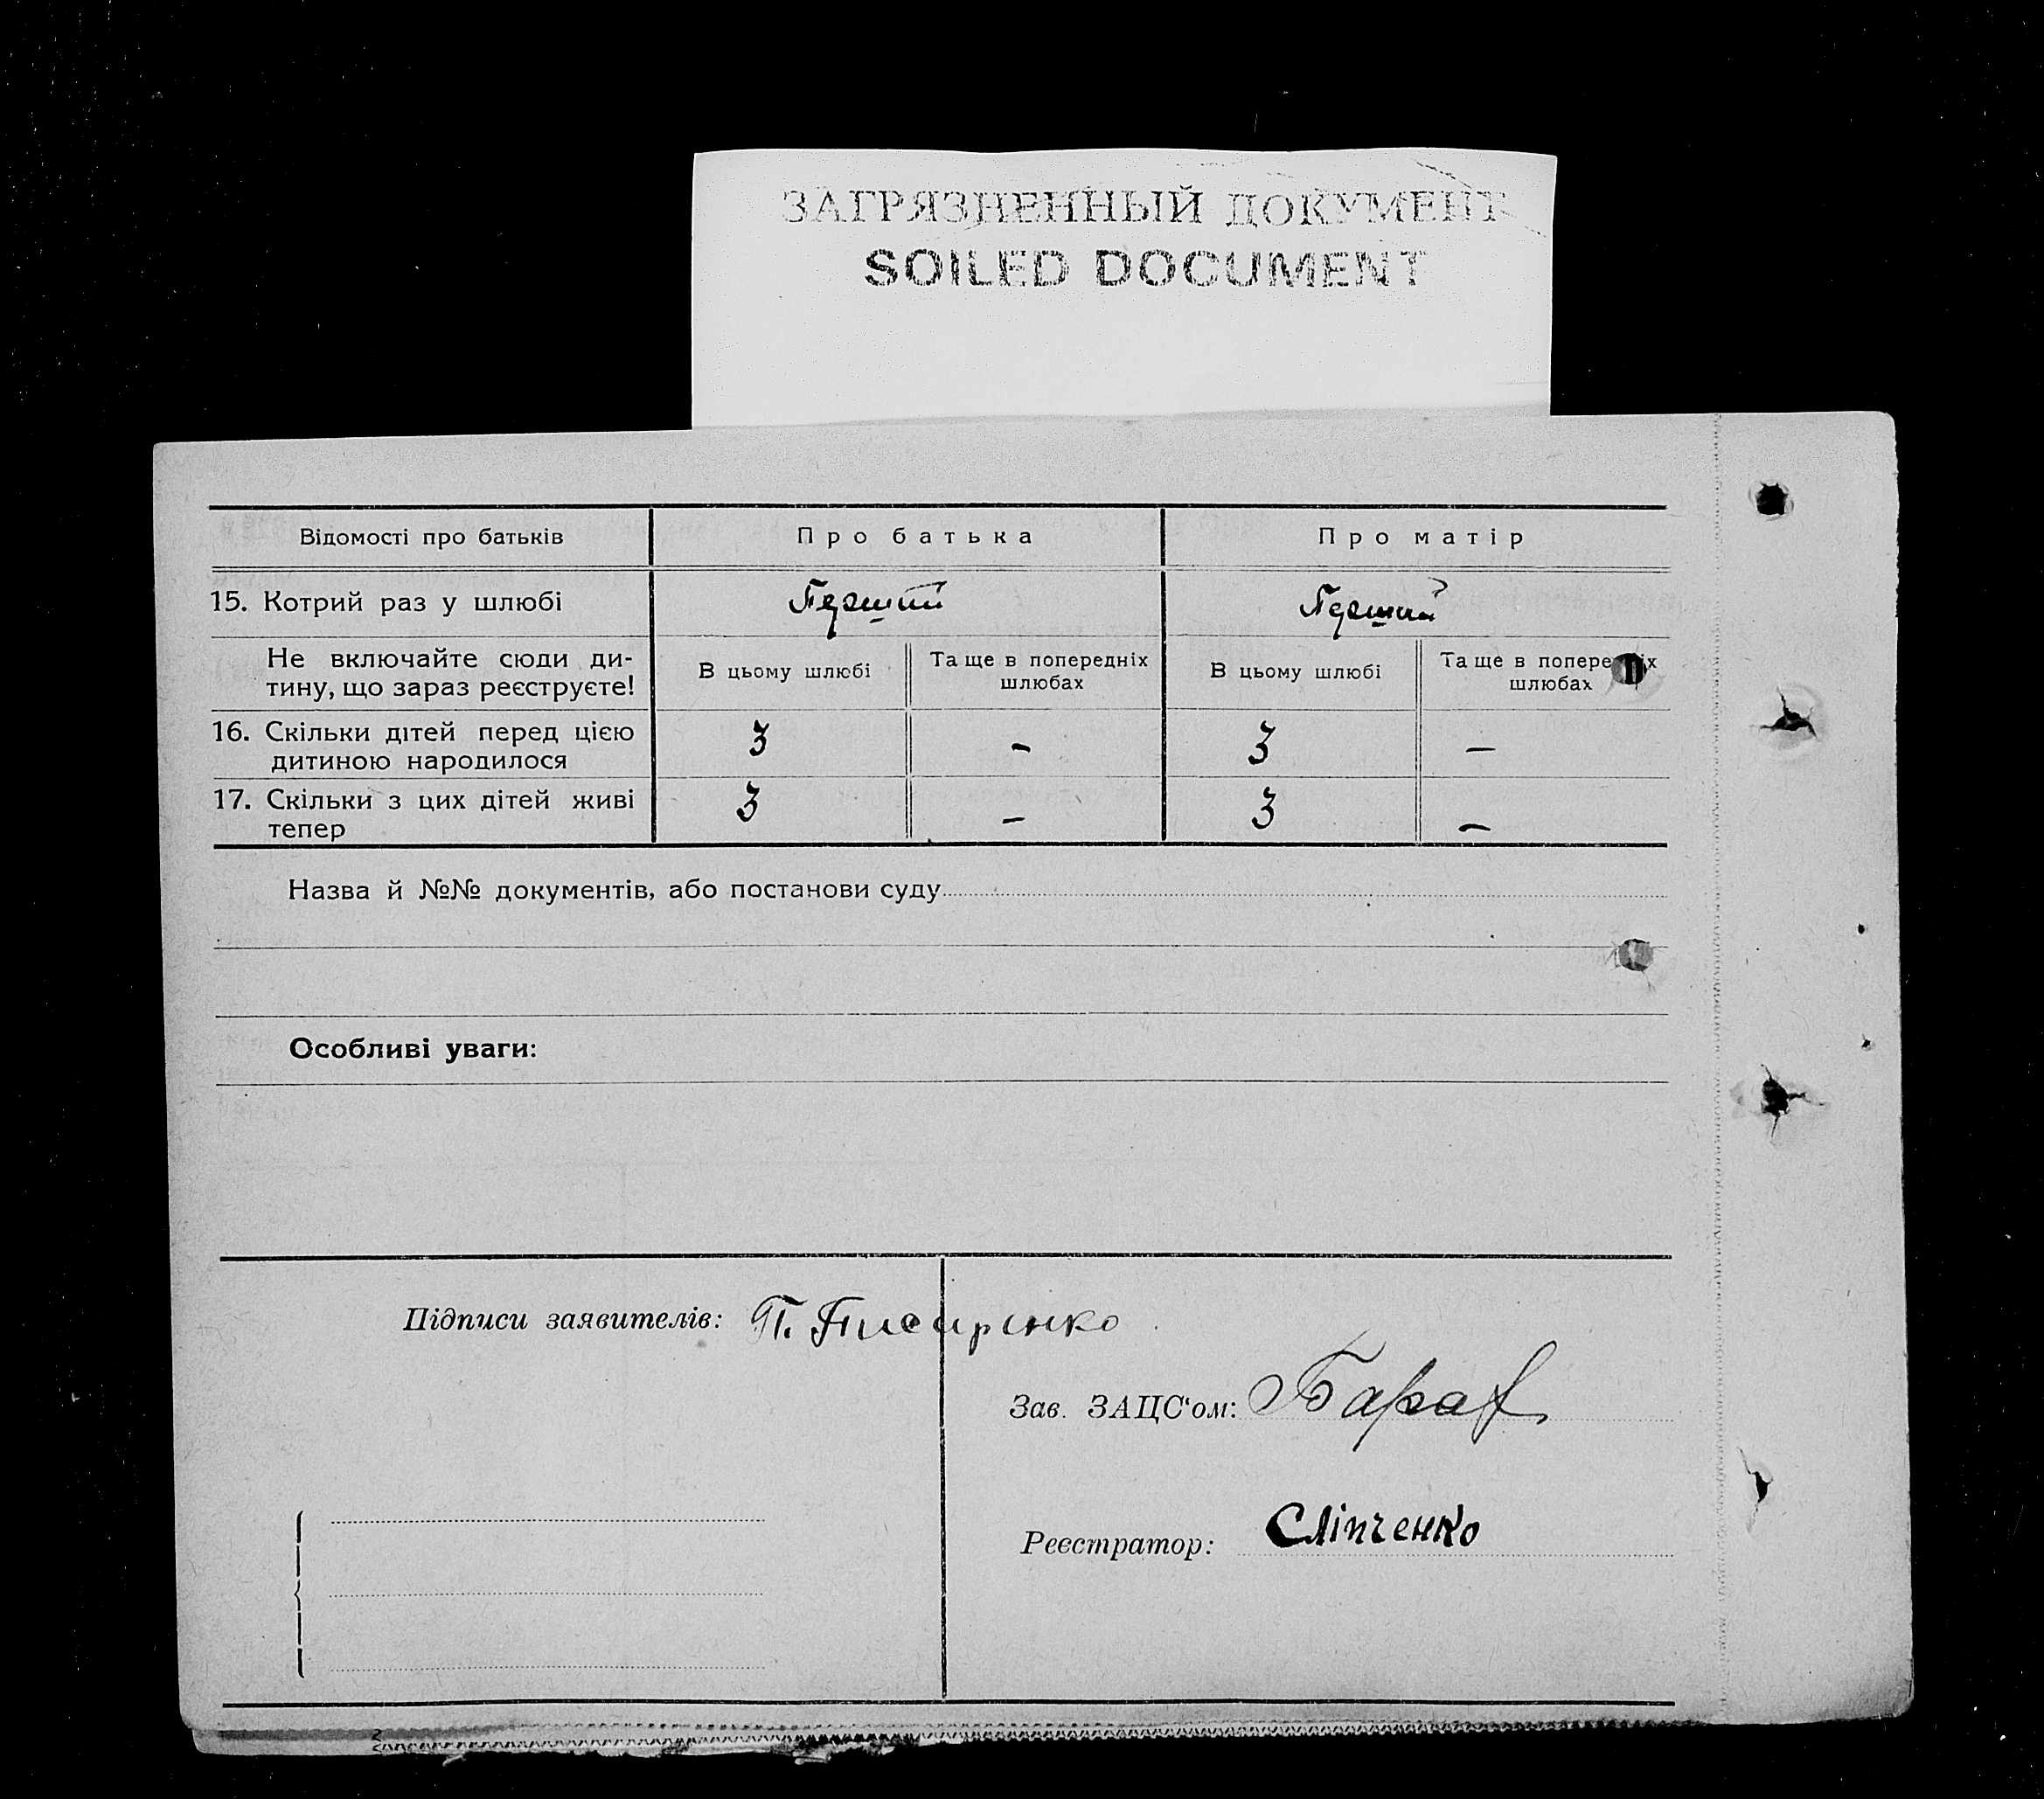 ЗАГРЯЗНЕННЫЙ ДОКУМЕНТ
SOILED DOCUMENT
Відомості про батьків Про батька Про матір
15. Котрий раз у шлюбі Перший Перший
Не включайте сюди ди-
тину, що зараз реєструєте!
В цьому шлюбі Та ще в попередніх шлюбах В цьому шлюбі Та ще в попередніх шлюбах
16. Скільки дітей перед цією
дитиною народилося
3 – 3 –
17. Скільки з цих дітей живі
тепер
3 – 3 –
Назва й №№ документів, або постанови суду
Особливі уваги:
Підписи заявителів: П.
Зав. ЗАЦС‘ом:
Реєстратор: Сліпченко